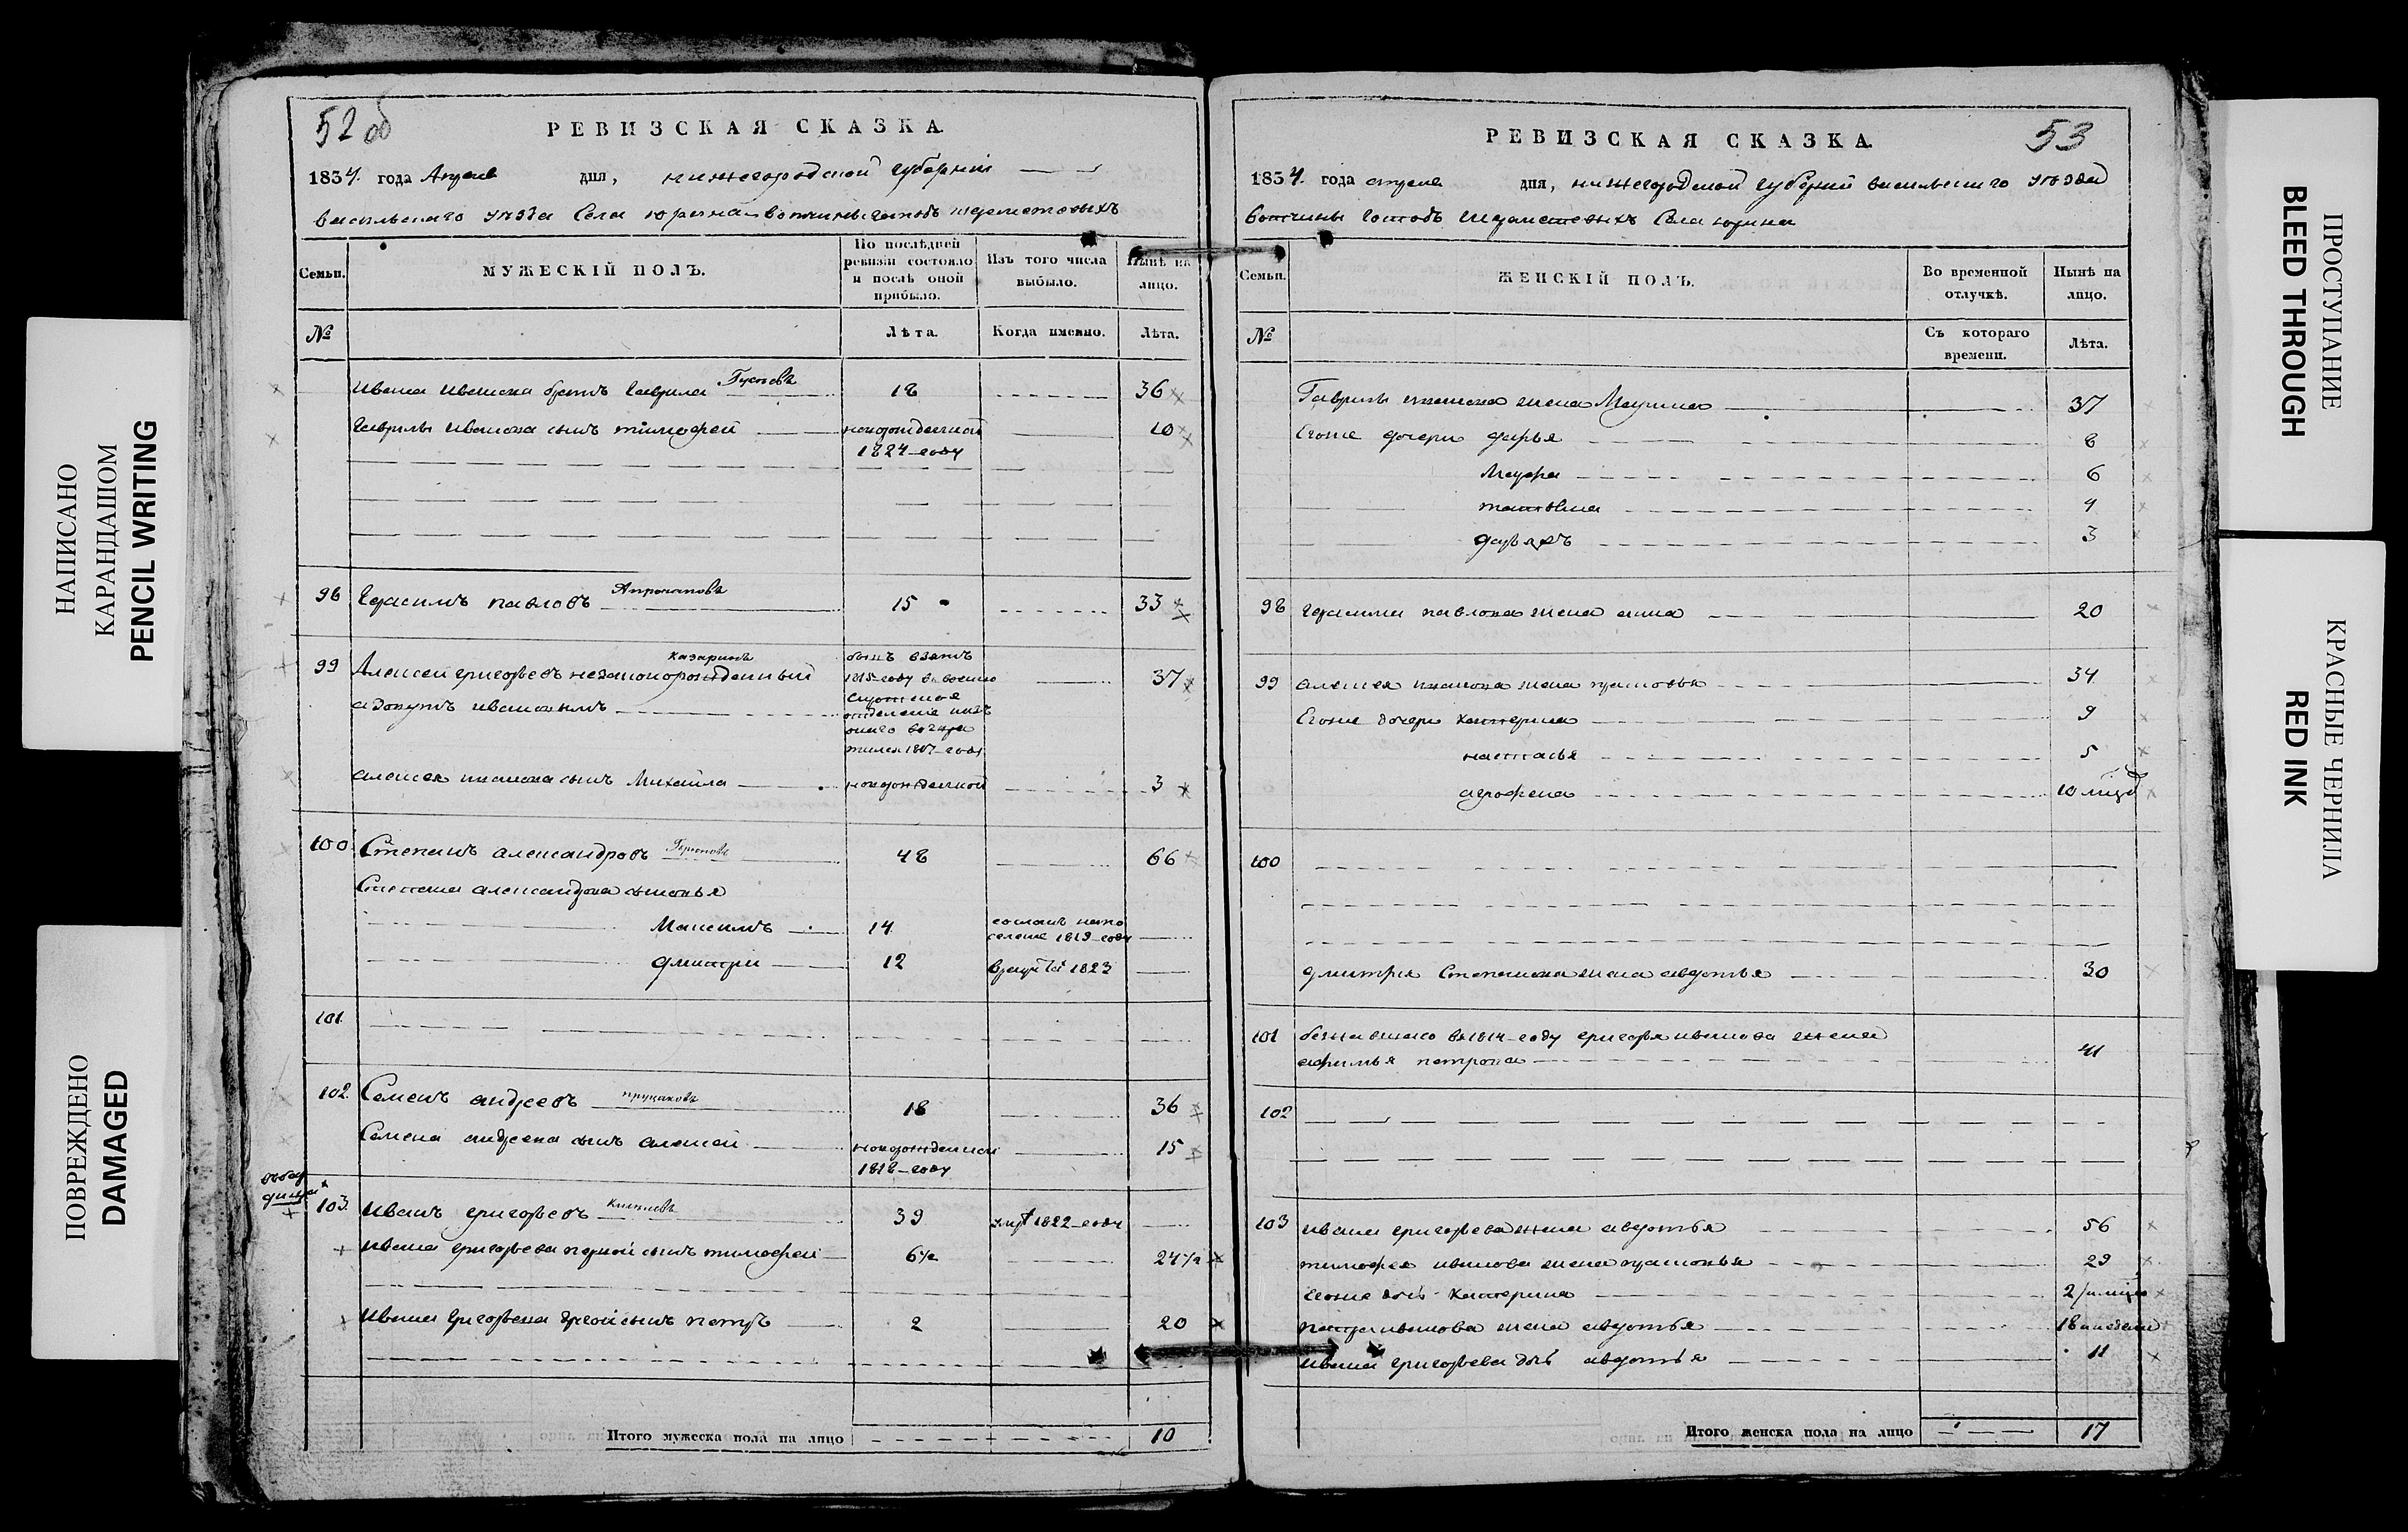 НАПИСАНО
КАРАНДАШОМ
PENCIL WRITING
ПОВРЕЖДЕНО
DAMAGED
52 об
РЕВИЗСКАЯ СКАЗКА
1834. года Апреля дня, нижегородской губернии
васильскаго уезда Села юрина вотчины господъ шереметевыхъ
Семьи.
МУЖЕСКІЙ ПОЛЪ.
По послѣдней ревизіи состояло и послѣ оной прибыло.
Изъ того числа выбыло.
Нынѣ на лицо.
№
Лѣта.
Когда именно.
Лѣта.
ивана иванова братъ гаврила 18 36
гаврилы иванова сынъ тимофей новорожденной 10
1824 году
98 герасимъ павловъ 15 33
Казаринъ
99 Алексей григорьевъ незаконорожденный 37
был взятъ
1815 году в военно
алексея иванова сынъ Михайла новорожденной 3
100 Степанъ александровъ 48 66
Степана александрова сыновья
Максимъ 14 сосланъ на по
селение 1819 году
дмитри 12 1823
101
102. Семенъ андреевъ 18 36
Семена андреева сынъ алексей новорожденной 15
1818 году
103. иванъ григорьевъ 39 1822 году
ивана григорьева первой сынъ тимофей 6½ 24½
ивана григорьева другой сынъ петръ 2 20
Итого мужеска пола на лицо 10
53
РЕВИЗСКАЯ СКАЗКА.
1834. года апреля дня, нижегородской губернии васильскаго уезда
вотчины господъ шереметевыхъ Села юрина
Семьи.
ЖЕНСКІЙ ПОЛЪ.
Во временной отлучкѣ.
Нынѣ на лицо.
№
Съ котораго времени.
Лѣта.
Гаврилы иванова жена Марина 37
Егоже дочери дарья 8
Мавра 6
татьяна 4
3
98 герасима павлова жена анна 20
99 алексея иванова жена прасковья 34
Егоже дочери катерина 9
настасья 5
аграфена 10
100
дмитрия Степанова жена авдотья 30
101 бежавшаго в 1814 году григорья иванова жена
афимья петрова 41
102
103 ивана григорьева жена авдотья 56
тимофея иванова жена прасковья 29
егоже дочь катерина 2
петра иванова жена авдотья 18
ивана григорьева дочь авдотья 11
Итого женска пола на лицо 17
ПРОСТУПАНИЕ
BLEED THROUGH
КРАСНЫЕ ЧЕРНИЛА
RED INK